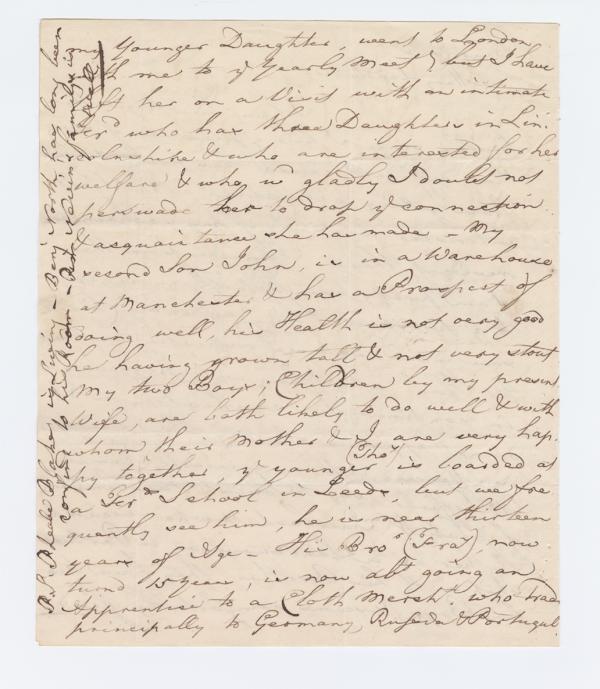 my Younger Daughter, went to London
with me to yͤ Yearly Meetg but I have
left her on a Visit with an intimate
Frd who has three Daughters in Lin:
colnshire & who are interested for her
welfare & who wd gladly I doubt not
perswade her to drop yͤ connection
& acquaintance she has made - My
second Son John, is in a Warehouse
at Manchester & has a Prospect of
doing well, his Health is not very good
he having grown tall & not very stout
My two Boys; Children by my present
Wife, are both likely to do well & with
whom their Mother & I are very hap-
py together, yͤ younger (Thos) is boarded at
a Frds School in Leeds, but we fre
quently see him, he is near thirteen
years of Age - His Bror (Isra), now
turnd 15 year, is now abt going an
Apprentice to a Cloth Mercht who Trades
principally to Germany, Russia & Portugal
P.S. Phebe Blakes is Living - Benj North has long been
confind to his Room - family is
well